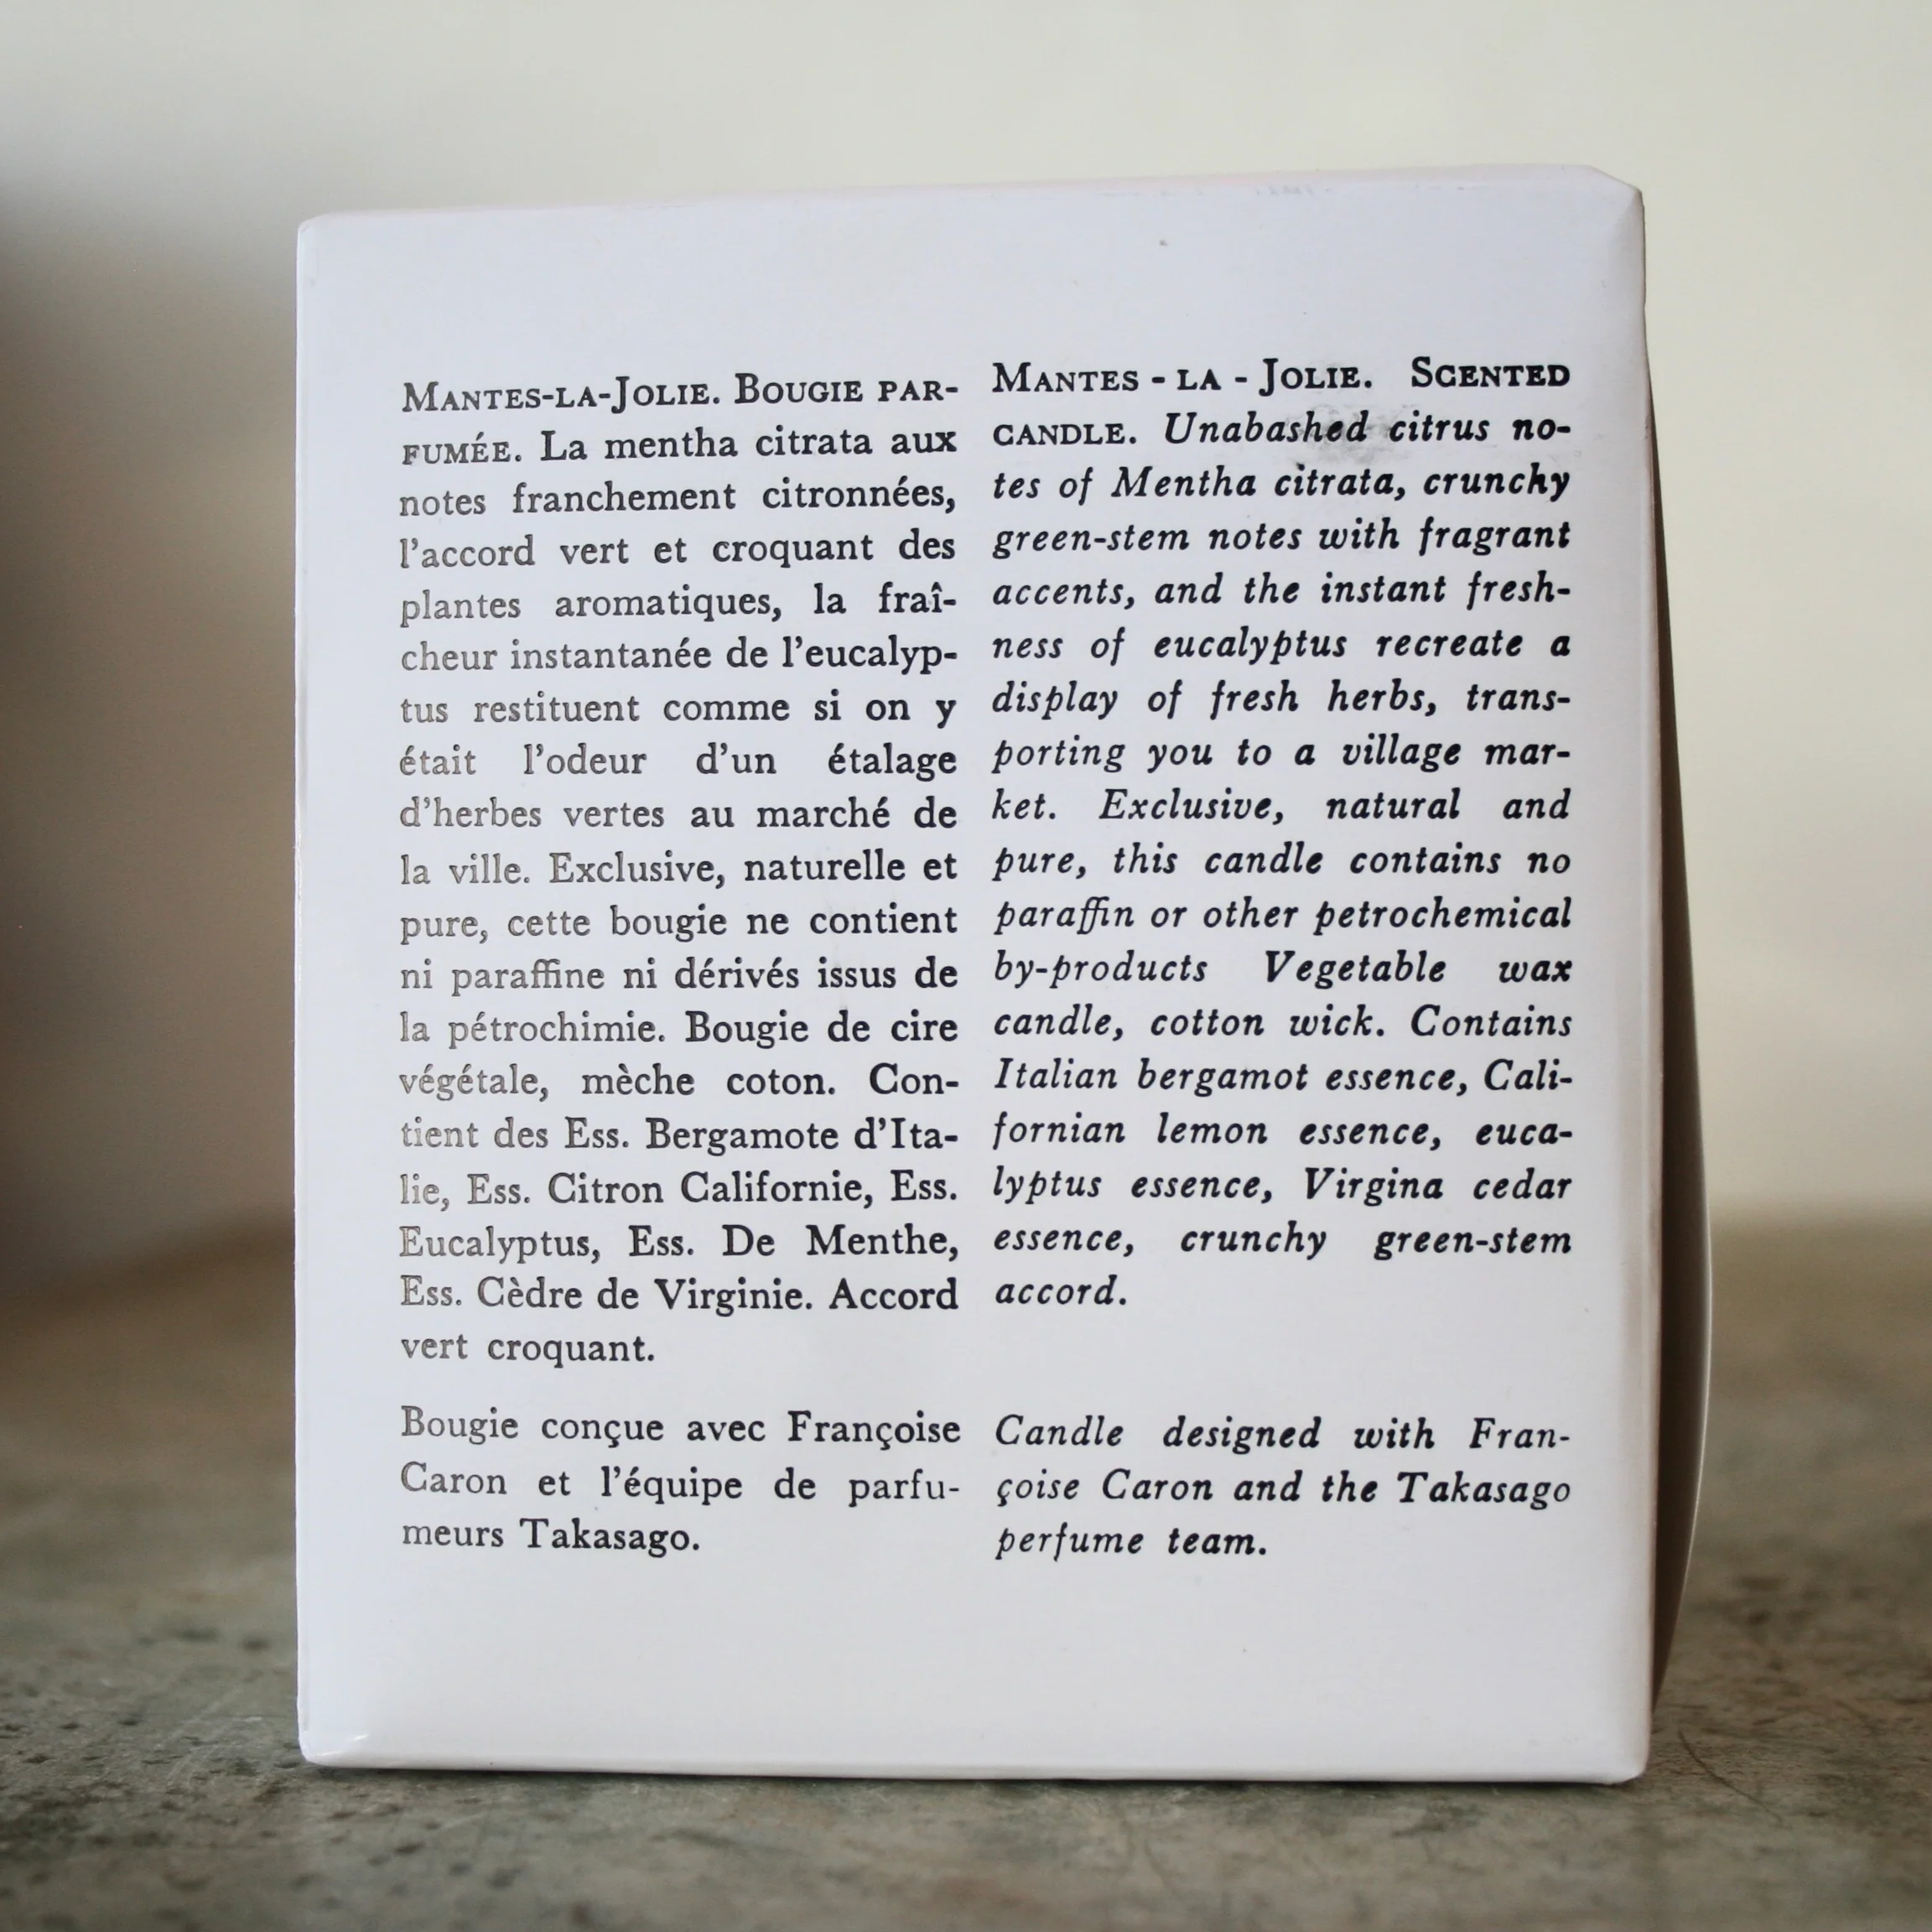 MANTES-LA-JOLIE. BOUGIE PAR-
FUMÉE. La mentha citrata aux
notes franchement citronnées,
l'accord vert et croquant des
plantes aromatiques, la fraî-
cheur instantanée de l'eucalyp-
tus restituent comme si on y
était l'odeur d'un étalage
d'herbes vertes au marché de
la ville. Exclusive, naturelle et
pure, cette bougie ne contient
ni paraffine ni dérivés issus de
la pétrochimie. Bougie de cire
végétale, mèche coton. Con-
tient des Ess. Bergamote d'Ita-
lie, Ess. Citron Californie, Ess.
Eucalyptus, Ess. De Menthe,
Ess. Cèdre de Virginie. Accord
vert croquant.
Bougie conçue avec Françoise
Caron et l'équipe de parfu-
meurs Takasago.
MANTES - LA - JOLIE. SCENTED
CANDLE. Unabashed citrus no-
tes of Mentha citrata, crunchy
green-stem notes with fragrant
accents, and the instant fresh-
ness of eucalyptus recreate a
display of fresh herbs, trans-
porting you to a village mar-
ket. Exclusive, natural and
pure, this candle contains no
paraffin or other petrochemical
by-products Vegetable wax
candle, cotton wick. Contains
Italian bergamot essence, Cali-
fornian lemon essence, euca-
lyptus essence, Virgina cedar
essence, crunchy green-stem
accord.
Candle designed with Fran-
çoise Caron and the Takasago
perfume team.